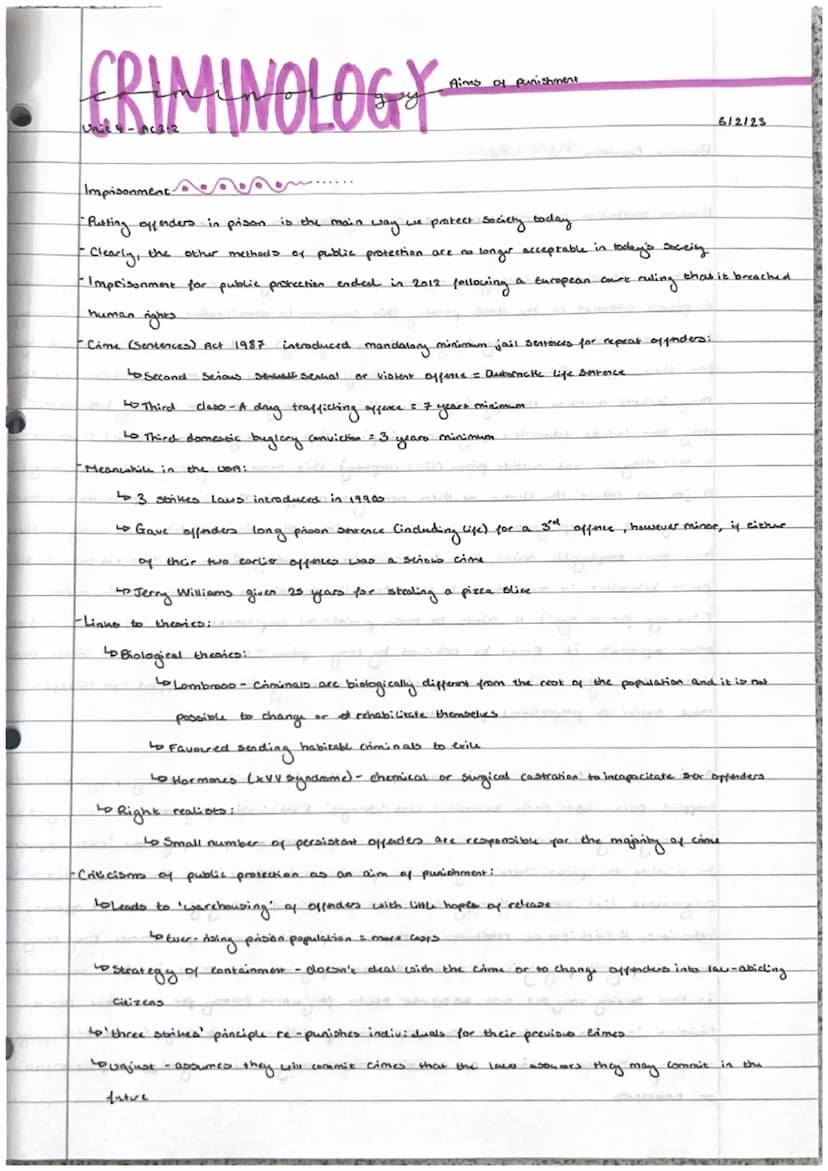 CRIMINOLOGY
criminology
Aims of punishment
Unit 4 - AC2.2
6/2/23
Imprisonment
- Putting offenders in prison is the main way we protect society today
- Clearly, the other methods of public protection are no longer acceptable in today's society
- Imprisonment for public protection ended in 2012 following a European court ruling that it breached
human rights
- Crime (Sentences) Act 1987 introduced mandatory minimum jail sentences for repeat offenders:
↳ Second serious sexual or violent offence = automatic life sentence
↳ Third class-A drug trafficking offence = 7 years minimum
↳ Third domestic buglary conviction = 3 years minimum
- Meanwhile in the USA:
↳ 3 strikes laws introduced in 1990s
↳ Gave offenders long prison sentence (including life) for a 3rd offence, however minor, if either
of their two earlier offences was a serious crime
↳ Jerry Williams given 25 years for stealing a pizza slice
- Links to theories:
↳ Biological theories:
↳ Lombroso - criminals are biologically different from the rest of the population and it is not
possible to change or rehabilitate themselves
↳ Favoured sending habitable criminals to exile
↳ Hormones (XYY syndrome) - chemical or surgical castration to incapacitate sex offenders
↳ Right realists:
↳ Small number of persistant offenders are responsible for the majority of crime
- Criticisms of public protection as an aim of punishment:
↳ Leads to 'warehousing' of offenders with little hopes of release
↳ Ever-rising prison population = more costs
↳ Strategy of containment - doesn't deal with the crime or to change offenders into law-abiding
citizens
↳ 'three strikes' principle re-punishes individuals for their previous crimes
↳ Unjust - assumes they will commit crimes that the law assumes they may commit in the
future